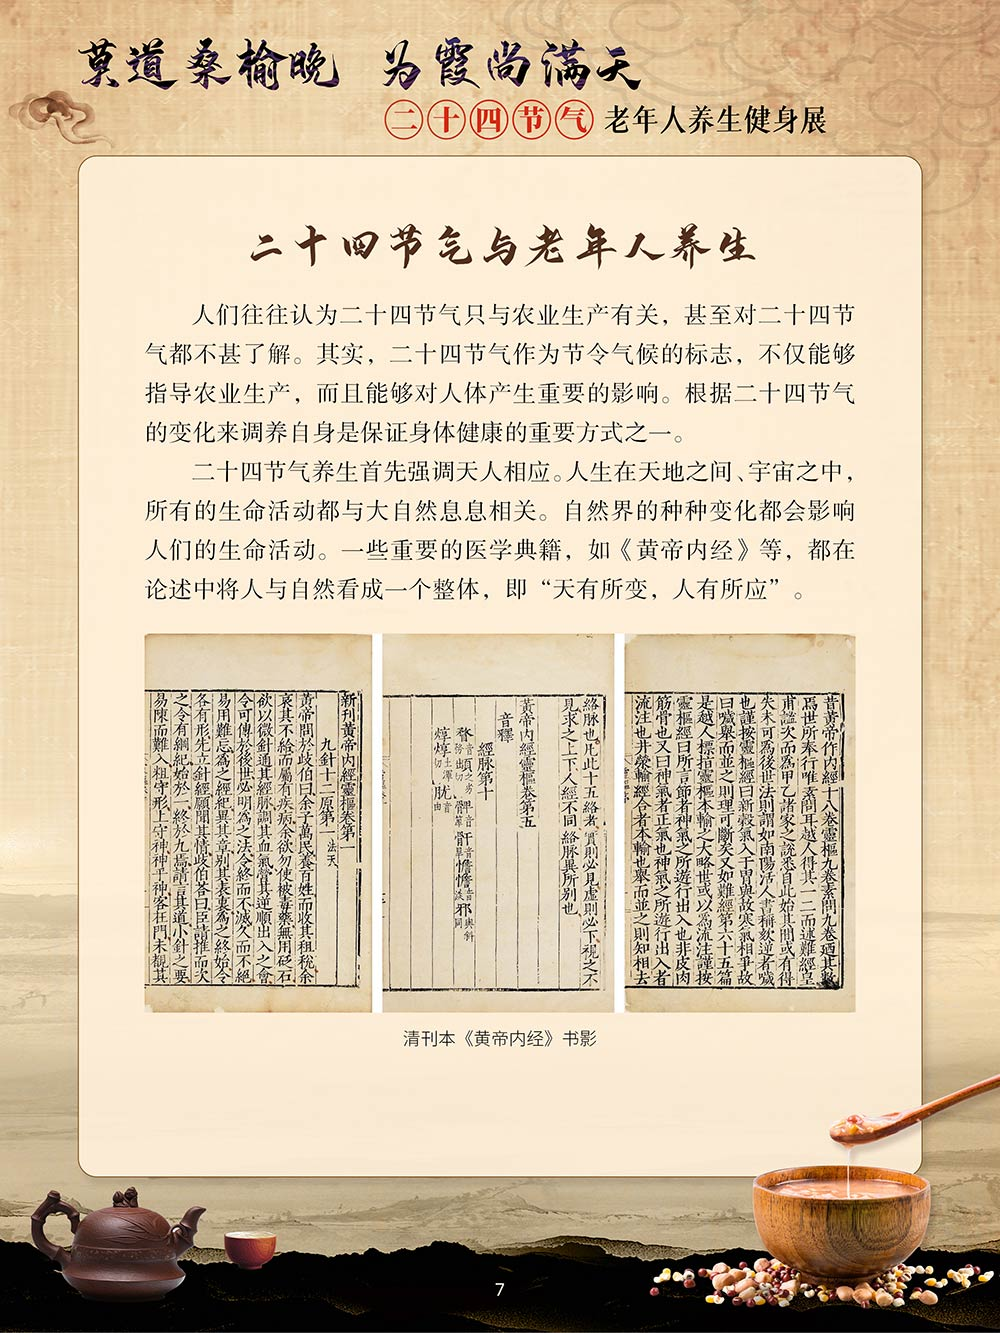 莫道桑榆晚 为霞尚满天
二十四节气 老年人养生健身展
二十四节气与老年人养生
人们往往认为二十四节气只与农业生产有关，甚至对二十四节
气都不甚了解。其实，二十四节气作为节令气候的标志，不仅能够
指导农业生产，而且能够对人体产生重要的影响。根据二十四节气
的变化来调养自身是保证身体健康的重要方式之一。
二十四节气养生首先强调天人相应。人生在天地之间、宇宙之中，
所有的生命活动都与大自然息息相关。自然界的种种变化都会影响
人们的生命活动。一些重要的医学典籍，如《黄帝内经》等，都在
论述中将人与自然看成一个整体，即“天有所变，人有所应”。
昔黃帝作內經十八卷靈樞九卷素問九卷廼其數
焉世所奉行唯素問耳越人得其一二而述難經皇
甫謐次而為甲乙諸家之說悉自此始其間或有得
失未可為後世法則謂如南陽活人書稱欬逆者噦
也謹按靈樞經曰新穀氣入于胃與故寒氣相爭故
曰噦舉而並之則理可斷矣又如難經第六十五篇
是越人標指靈樞本輸之大略世或以為流注謹按
靈樞經曰所言節者神氣之所遊行出入也非皮肉
筋骨也又曰神氣者正氣也神氣之所遊行出入者
流注也井滎輸經合者本輸也舉而並之則知相去
絡脉也凡此十五絡者實則必見虛則必下視之不
見求之上下人經不同絡脉異所別也
黃帝內經靈樞卷第五
音釋
經脉第十
新刊黃帝內經靈樞卷第一
九針十二原第一 法天
黃帝問於歧伯曰余子萬民養百姓而收其租稅余
哀其不給而屬有疾病余欲勿使被毒藥無用砭石
欲以微針通其經脉調其血氣營其逆順出入之會
令可傳於後世必明為之法令終而不滅久而不絕
易用難忘為之經紀異其章別其表裏為之終始令
各有形先立針經願聞其情歧伯荅曰臣請推而次
之令有綱紀始於一終於九焉請言其道小針之要
易陳而難入粗守形上守神神乎神客在門未覩其
清刊本《黄帝内经》书影
7